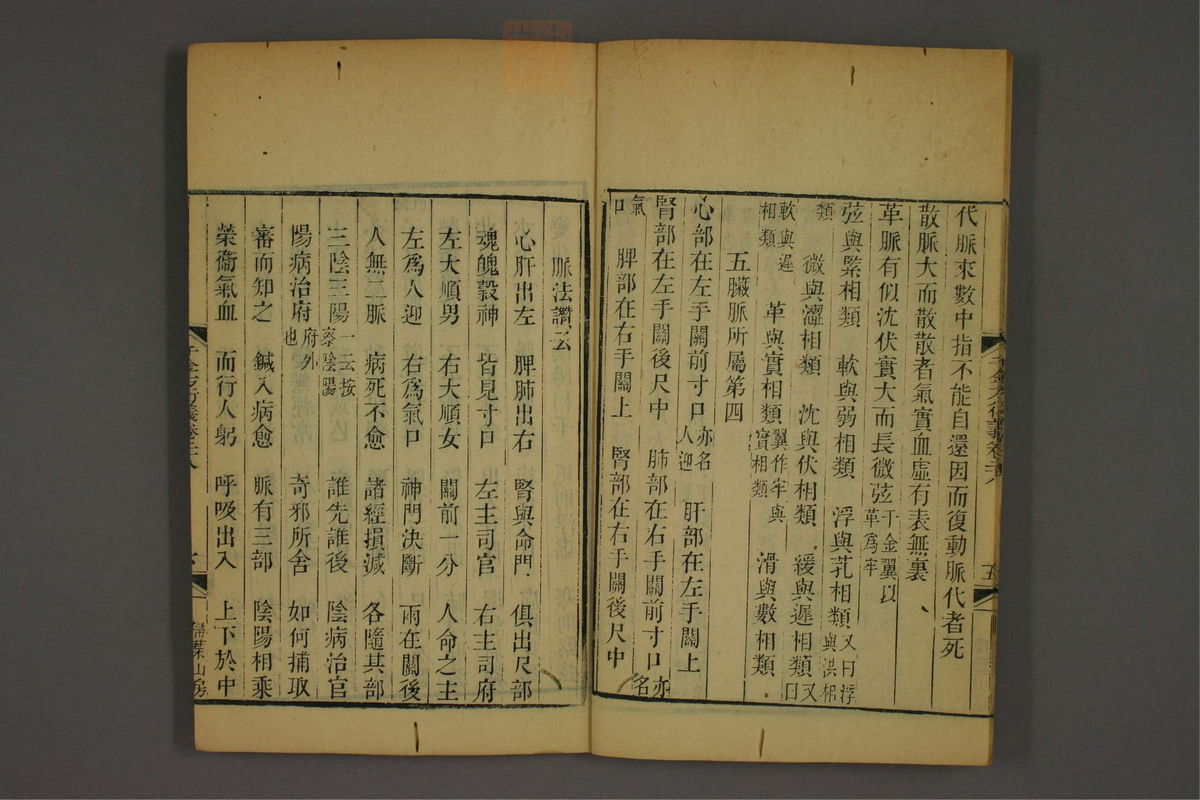 代脈來數中指不能自還因而復動脈代者死
散脈大而散散者氣實血虛有表無裏
革脈有似沈伏實大而長微弦千金翼以革爲牢
弦與緊相類　軟與弱相類　浮與芤相類又曰浮與洪相
類　微與澀相類　沈與伏相類　緩與遲相類又曰
軟與遲相類　革與實相類翼作牢與實相類　滑與數相類
五臟脈所屬第四
心部在左手關前寸口亦名人迎　肝部在左手關上
腎部在左手關後尺中　肺部在右手關前寸口亦名
氣口　脾部在右手關上　腎部在右手關後尺中
脈法讚云
心肝出左　脾肺出右　腎與命門　俱出尺部
魂魄穀神　皆見寸口　左主司官　右主司府
左大順男　右大順女　關前一分　人命之主
左爲人迎　右爲氣口　神門決斷　兩在關後
人無二脈　病死不愈　諸經損減　各隨其部
三陰三陽一云按察陰陽　誰先誰後　陰病治官
陽病治府府外也　奇邪所舍　如何捕取
審而知之　鍼入病愈　脈有三部　陰陽相乘
榮衞氣血　而行人躬　呼吸出入　上下於中
掃葉山房